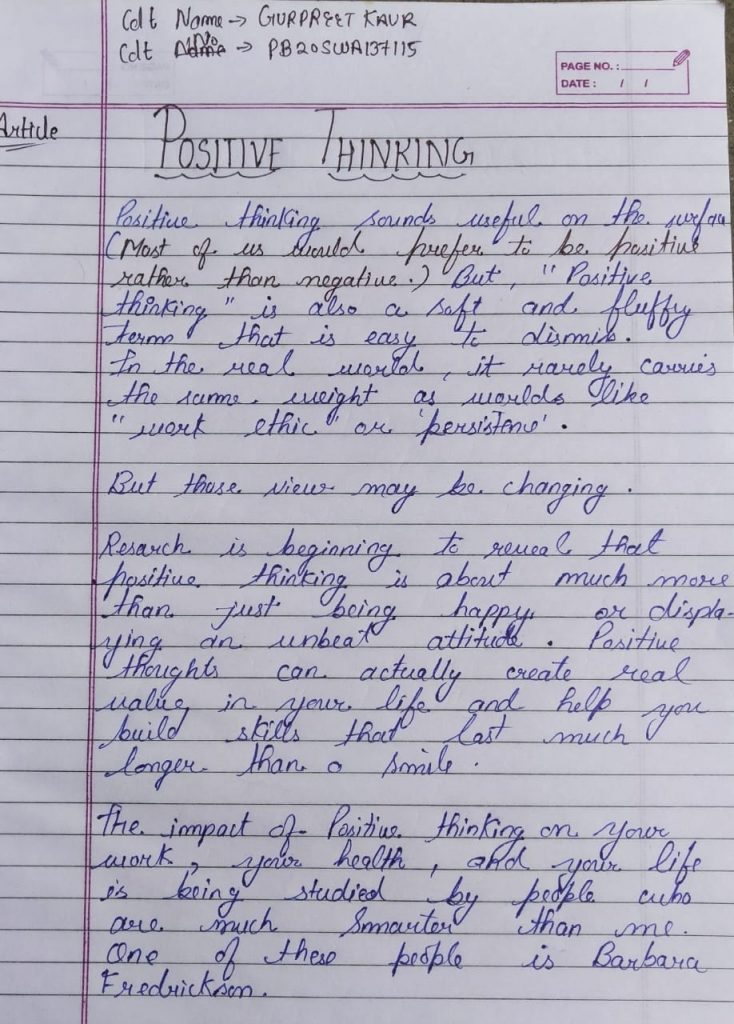 Cdt Name → GURPREET KAUR
Cdt No → PB20SWA137115
PAGE NO. :
DATE : / /
Article
POSITIVE THINKING
Positive thinking sounds useful on the surface
(Most of us would prefer to be positive
rather than negative.) But, "Positive
thinking" is also a soft and fluffy
term that is easy to dismiss.
In the real world, it rarely carries
the same weight as worlds like
"work ethic" or 'persistence'.
But those view may be changing.
Resarch is beginning to reveal that
positive thinking is about much more
than just being happy or displa-
ying an unbeat attitude. Positive
thoughts can actually create real
value in your life and help you
build skills that last much
longer than a smile.
The impact of Positive thinking on your
work, your health, and your life
is being studied by people who
are much Smarter than me.
One of these people is Barbara
Fredrickson.